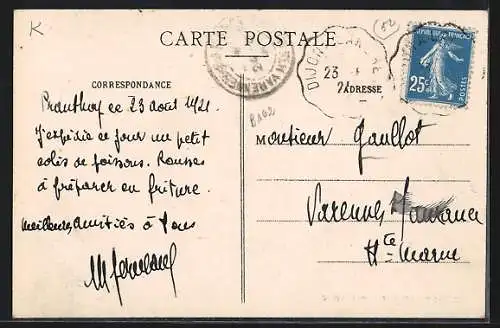 K
CARTE POSTALE
(50)
DIJON
23
21
REPUBLIQUE FRANÇAISE
25c
POSTES
CORRESPONDANCE
ADRESSE
Prauthoy ce 23 août 1921.
J'expédie ce jour un petit
colis de poissons. Pensez
à préparer en friture.
Meilleures amitiés à tous
Monsieur Gaullot
Varennes
Hte Marne